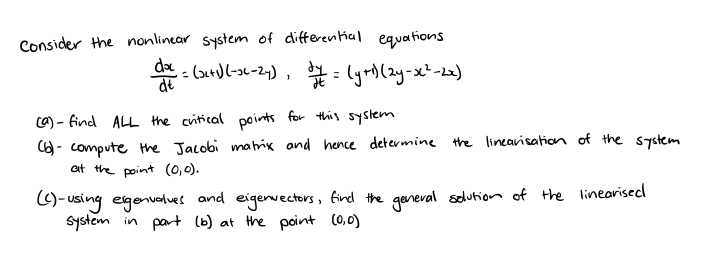 Consider the nonlinear system of differential equations
dx/dt = (x+1)(-x-2y) , dy/dt = (y+1)(2y-x²-2x)
(a) - find ALL the critical points for this system
(b) - compute the Jacobi matrix and hence determine the linearisation of the system
at the point (0,0).
(c) - using eigenvalues and eigenvectors, find the general solution of the linearised
system in part (b) at the point (0,0)